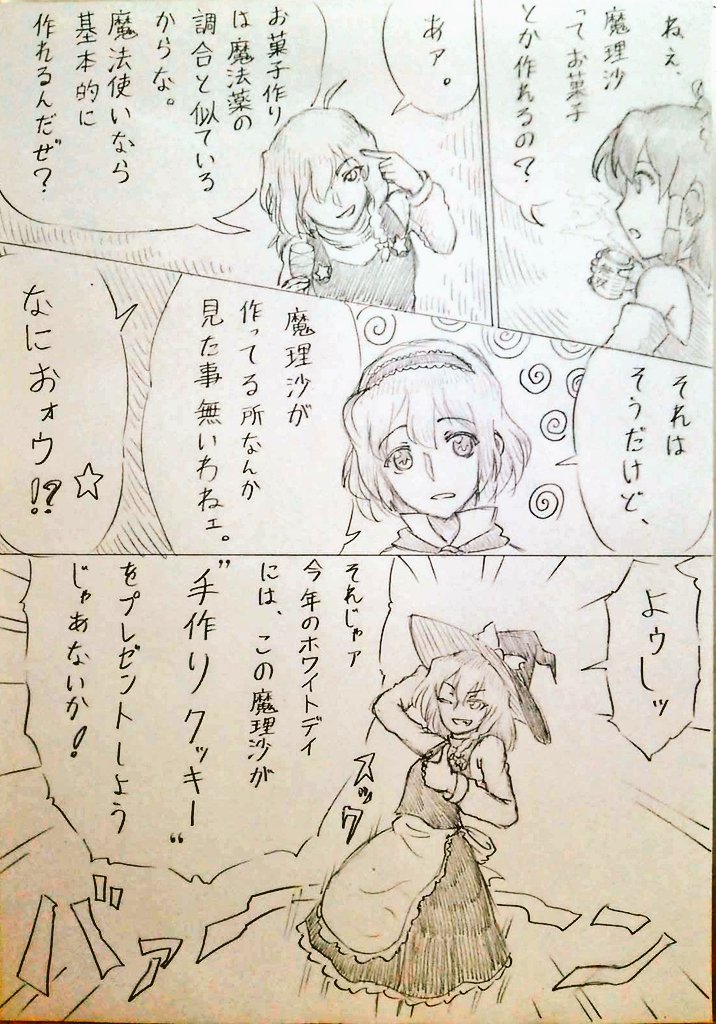 ねえ、
魔理沙
ってお菓子
とか作れるの？
あァ。
お菓子作り
は魔法薬の
調合と似ている
からな。
魔法使いなら
基本的に
作れるんだぜ？
それは
そうだけど、
魔理沙が
作ってる所なんか
見た事無いわねェ。
なにおォウ!?☆
よゥしッ
それじゃァ
今年のホワイトデイ
には、この魔理沙が
"手作りクッキー"
をプレゼントしよう
じゃあないか!
スック
バァーン